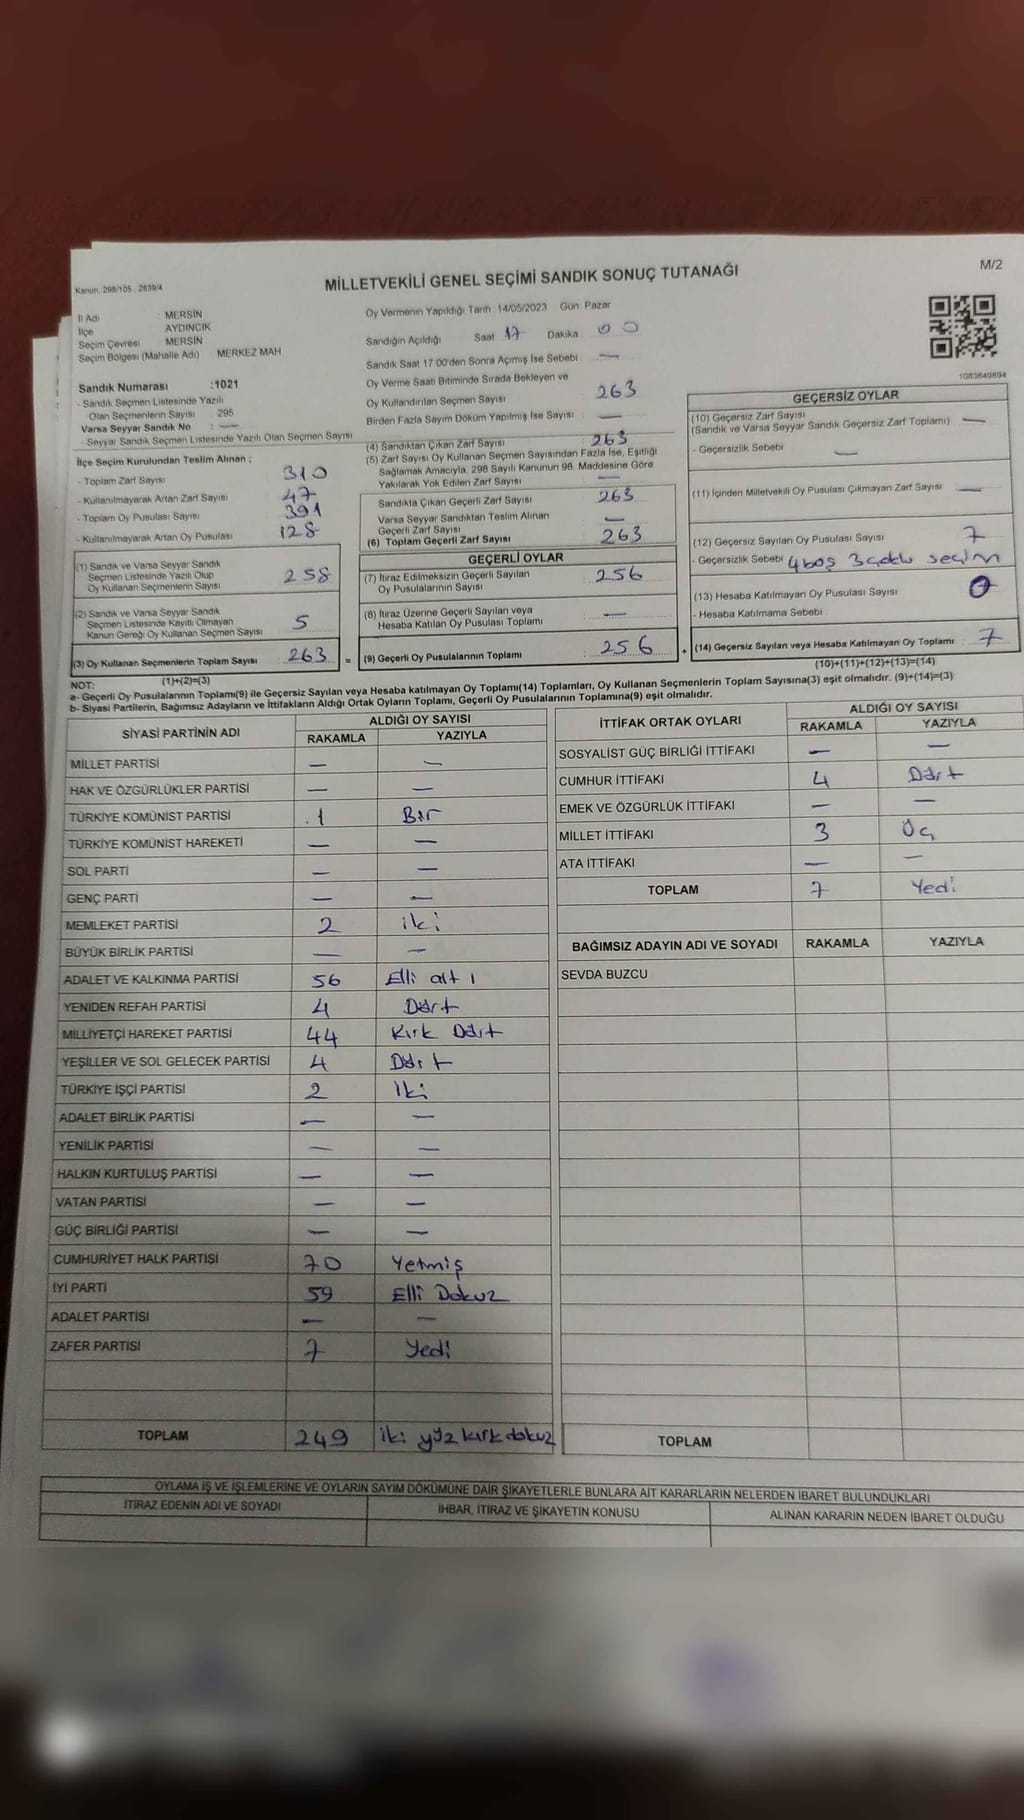 Kanun, 298/105 , 2839/4
MİLLETVEKİLİ GENEL SEÇİMİ SANDIK SONUÇ TUTANAĞI
M/2
İl Adı : MERSİN
İlçe : AYDINCIK
Seçim Çevresi : MERSİN
Seçim Bölgesi (Mahalle Adı) : MERKEZ MAH
Sandık Numarası :1021
- Sandık Seçmen Listesinde Yazılı
Olan Seçmenlerin Sayısı : 295
Varsa Seyyar Sandık No : —
- Seyyar Sandık Seçmen Listesinde Yazılı Olan Seçmen Sayısı
İlçe Seçim Kurulundan Teslim Alınan ;
- Toplam Zarf Sayısı : 310
- Kullanılmayarak Artan Zarf Sayısı : 47
- Toplam Oy Pusulası Sayısı : 391
- Kullanılmayarak Artan Oy Pusulası : 128
(1) Sandık ve Varsa Seyyar Sandık
Seçmen Listesinde Yazılı Olup
Oy Kullanan Seçmenlerin Sayısı : 258
(2) Sandık ve Varsa Seyyar Sandık
Seçmen Listesinde Kayıtlı Olmayan
Kanun Gereği Oy Kullanan Seçmen Sayısı : 5
(3) Oy Kullanan Seçmenlerin Toplam Sayısı : 263
(1)+(2)=(3)
Oy Vermenin Yapıldığı Tarih :14/05/2023 Gün: Pazar
Sandığın Açıldığı Saat 17 Dakika 00
Sandık Saat 17.00'den Sonra Açımış İse Sebebi : —
Oy Verme Saati Bitiminde Sırada Bekleyen ve
Oy Kullandırılan Seçmen Sayısı : 263
Birden Fazla Sayım Döküm Yapılmış İse Sayısı : —
(4) Sandıktan Çıkan Zarf Sayısı : 263
(5) Zarf Sayısı Oy Kullanan Seçmen Sayısından Fazla İse, Eşitliği
Sağlamak Amacıyla, 298 Sayılı Kanunun 98. Maddesine Göre
Yakılarak Yok Edilen Zarf Sayısı : —
Sandıkta Çıkan Geçerli Zarf Sayısı : 263
Varsa Seyyar Sandıktan Teslim Alınan
Geçerli Zarf Sayısı : —
(6) Toplam Geçerli Zarf Sayısı : 263
GEÇERLİ OYLAR
(7) İtiraz Edilmeksizin Geçerli Sayılan
Oy Pusulalarının Sayısı : 256
(8) İtiraz Üzerine Geçerli Sayılan veya
Hesaba Katılan Oy Pusulası Toplamı : —
= (9) Geçerli Oy Pusulalarının Toplamı : 256
1083649894
GEÇERSİZ OYLAR
(10) Geçersiz Zarf Sayısı
(Sandık ve Varsa Seyyar Sandık Geçersiz Zarf Toplamı) : —
- Geçersizlik Sebebi : —
(11) İçinden Milletvekili Oy Pusulası Çıkmayan Zarf Sayısı : —
(12) Geçersiz Sayılan Oy Pusulası Sayısı : 7
- Geçersizlik Sebebi : 4 boş 3 çoklu seçim
(13) Hesaba Katılmayan Oy Pusulası Sayısı : 0
- Hesaba Katılmama Sebebi :
+ (14) Geçersiz Sayılan veya Hesaba Katılmayan Oy Toplamı : 7
(10)+(11)+(12)+(13)=(14)
NOT:
a- Geçerli Oy Pusulalarının Toplamı(9) ile Geçersiz Sayılan veya Hesaba katılmayan Oy Toplamı(14) Toplamları, Oy Kullanan Seçmenlerin Toplam Sayısına(3) eşit olmalıdır. (9)+(14)=(3)
b- Siyasi Partilerin, Bağımsız Adayların ve İttifakların Aldığı Ortak Oyların Toplamı, Geçerli Oy Pusulalarının Toplamına(9) eşit olmalıdır.
SİYASİ PARTİNİN ADI ALDIĞI OY SAYISI
RAKAMLA YAZIYLA
MİLLET PARTİSİ — —
HAK VE ÖZGÜRLÜKLER PARTİSİ — —
TÜRKİYE KOMÜNİST PARTİSİ 1 Bir
TÜRKİYE KOMÜNİST HAREKETİ — —
SOL PARTİ — —
GENÇ PARTİ — —
MEMLEKET PARTİSİ 2 iki
BÜYÜK BİRLİK PARTİSİ — —
ADALET VE KALKINMA PARTİSİ 56 Elli altı
YENİDEN REFAH PARTİSİ 4 Dört
MİLLİYETÇİ HAREKET PARTİSİ 44 Kırk Dört
YEŞİLLER VE SOL GELECEK PARTİSİ 4 Dört
TÜRKİYE İŞÇİ PARTİSİ 2 İki
ADALET BİRLİK PARTİSİ — —
YENİLİK PARTİSİ — —
HALKIN KURTULUŞ PARTİSİ — —
VATAN PARTİSİ — —
GÜÇ BİRLİĞİ PARTİSİ — —
CUMHURİYET HALK PARTİSİ 70 Yetmiş
İYİ PARTİ 59 Elli Dokuz
ADALET PARTİSİ — —
ZAFER PARTİSİ 7 Yedi
TOPLAM 249 iki yüz kırk dokuz
İTTİFAK ORTAK OYLARI ALDIĞI OY SAYISI
RAKAMLA YAZIYLA
SOSYALİST GÜÇ BİRLİĞİ İTTİFAKI — —
CUMHUR İTTİFAKI 4 Dört
EMEK VE ÖZGÜRLÜK İTTİFAKI — —
MİLLET İTTİFAKI 3 Üç
ATA İTTİFAKI — —
TOPLAM 7 Yedi
BAĞIMSIZ ADAYIN ADI VE SOYADI RAKAMLA YAZIYLA
SEVDA BUZCU
TOPLAM
OYLAMA İŞ VE İŞLEMLERİNE VE OYLARIN SAYIM DÖKÜMÜNE DAİR ŞİKAYETLERLE BUNLARA AİT KARARLARIN NELERDEN İBARET BULUNDUKLARI
İTİRAZ EDENİN ADI VE SOYADI İHBAR, İTİRAZ VE ŞİKAYETİN KONUSU ALINAN KARARIN NEDEN İBARET OLDUĞU